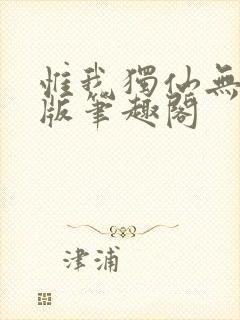 惟我獨仙無
版筆趣閣
津浦